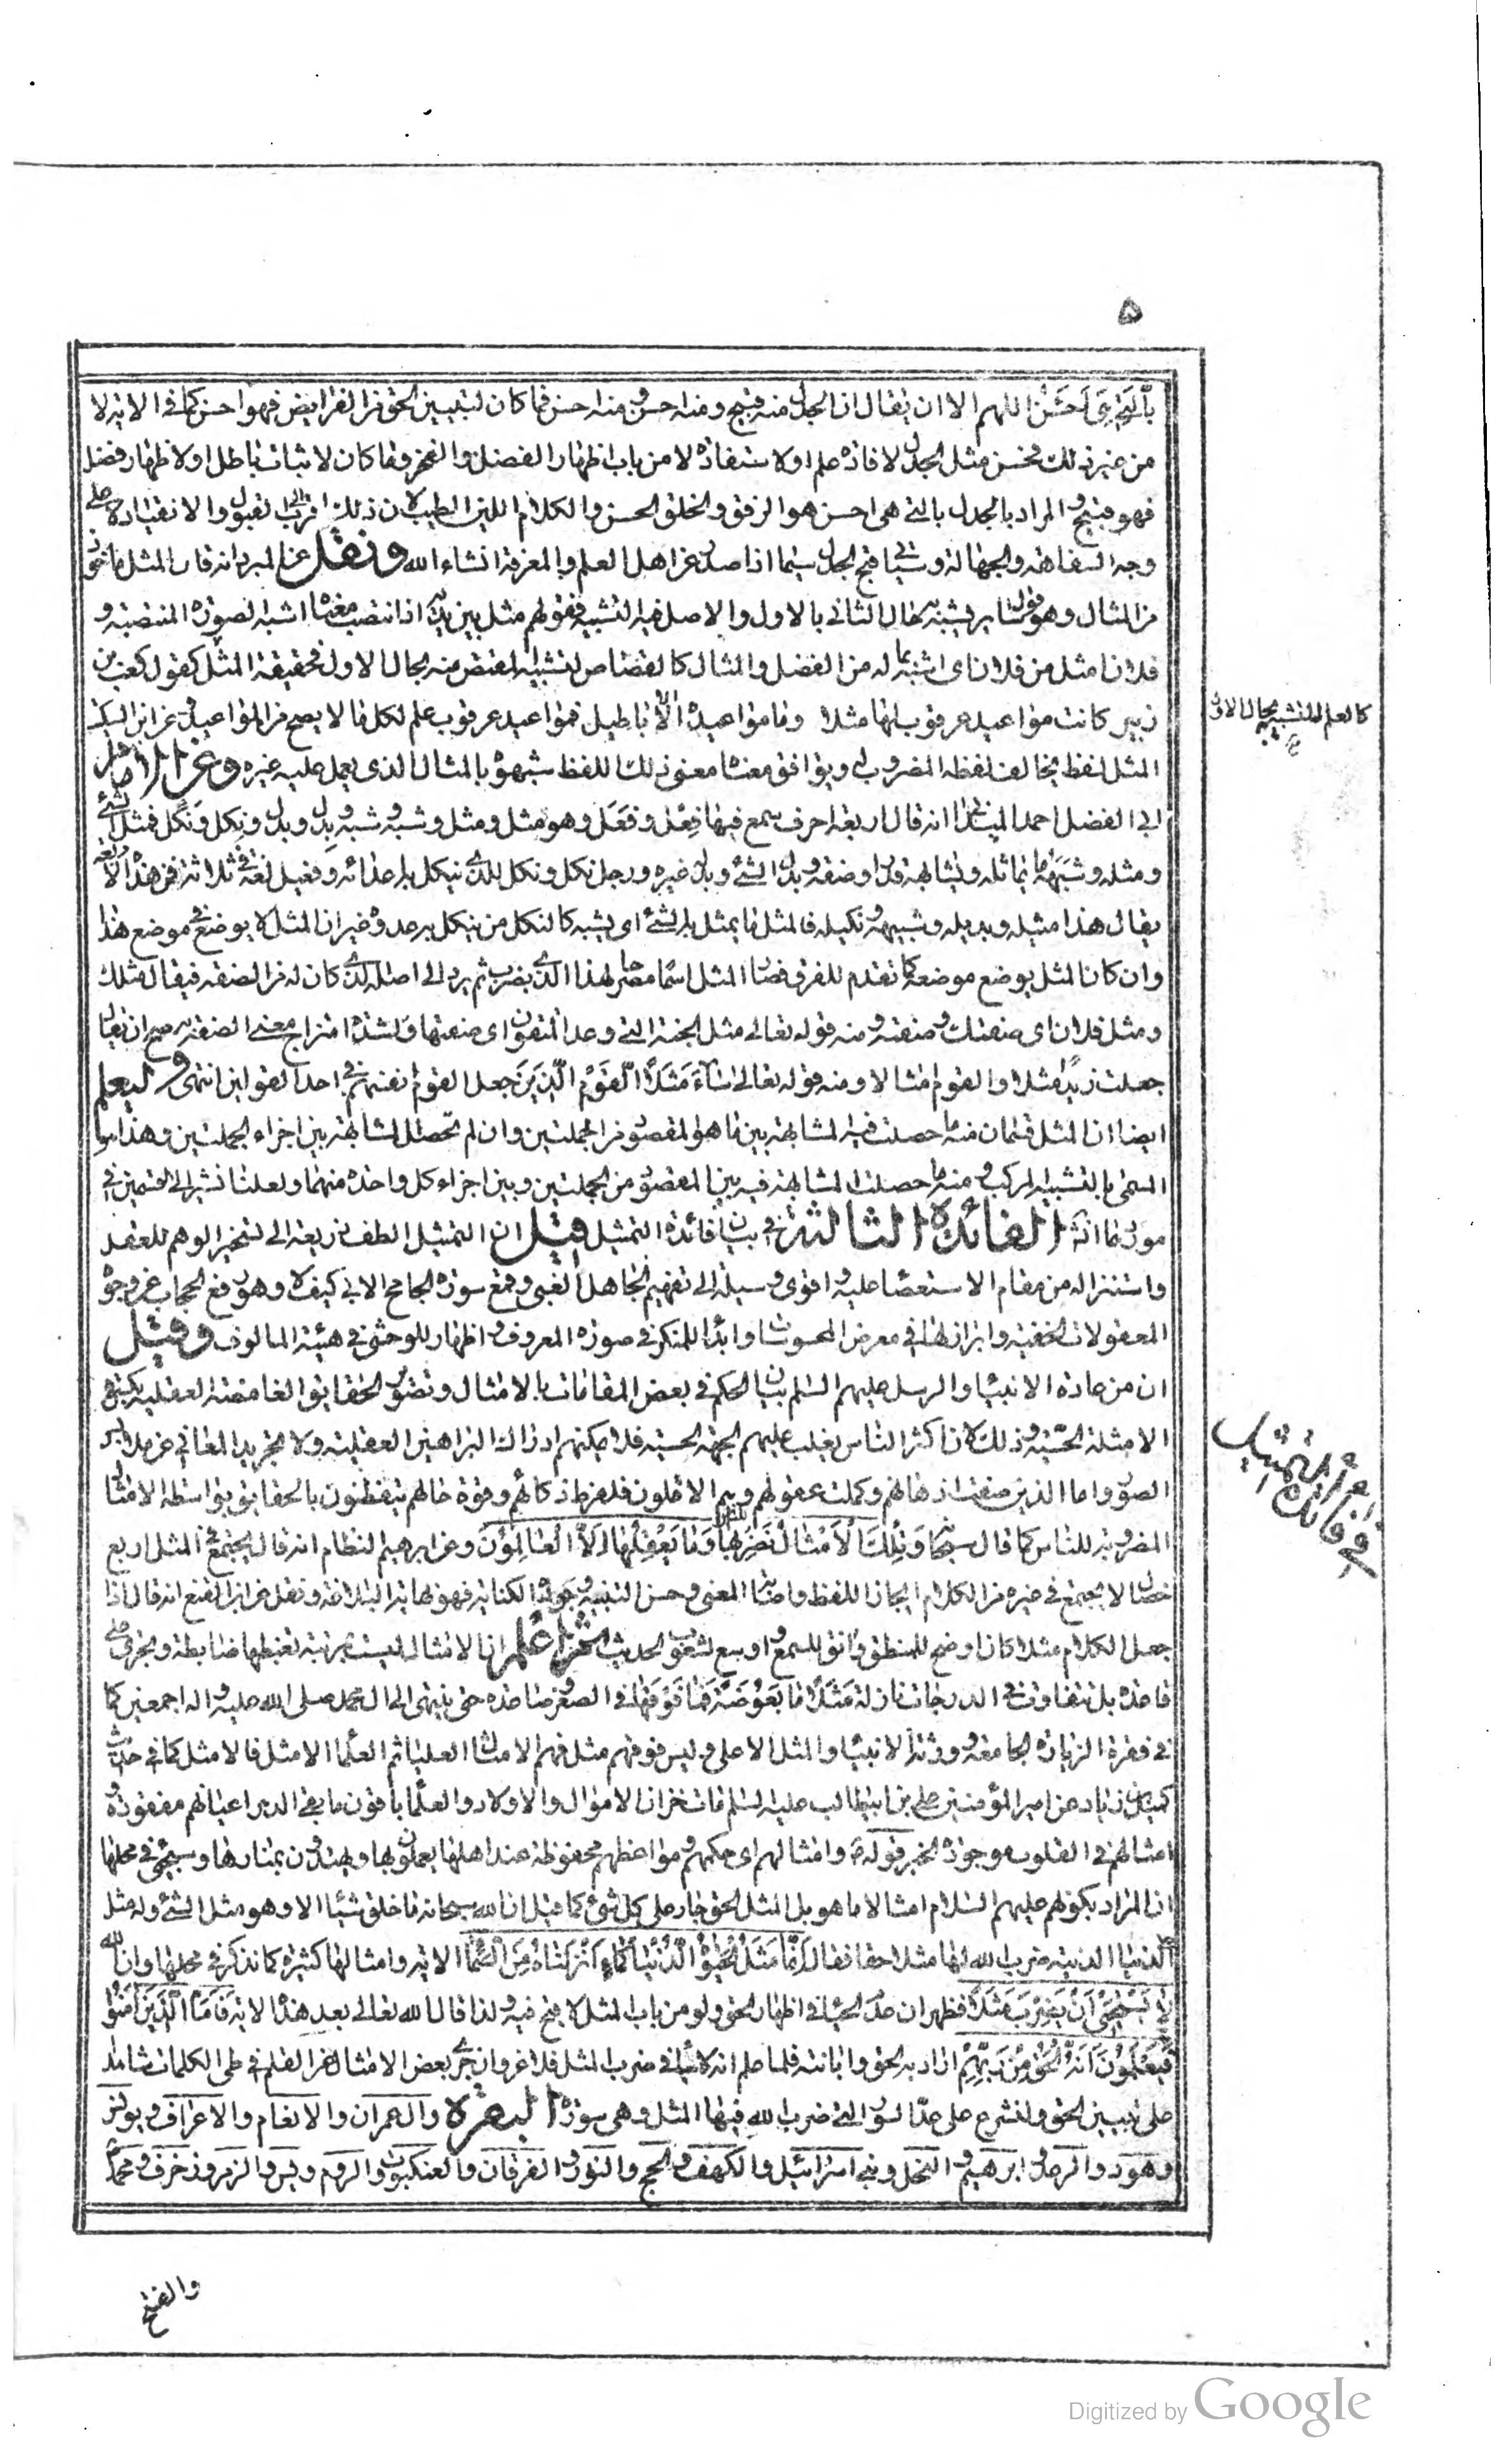 ۵
بالتي هي احسن اللهم الا ان يقال ان الجدل منه قبيح ومنه حسن ومنه احسن فما كان لتبيين الحق من الفرايض فهو احسن كما في الاية لا
من غير ذلك فحسن مثل الجدل لافادة علم او لاستفادة لا من باب اظهار الفضل والفخر وما كان لاثبات باطل او لاظهار فضل
فهو قبيح والمراد بالجدل بالتي هي احسن هو الرفق والخلق الحسن والكلام اللين الطيب لان ذلك اقرب الى القبول والانقياد لا على
وجه السفاهة والجهالة وسيأتي قبح الجدل سيما اذا صدر عن اهل العلم والمعرفة انشاء الله ونقل عن المبرد انه قال المثل ماخوذ
من المثال وهو قول سائر يشبه به حال الثاني بالاول والاصل فيه التشبيه فقولهم مثل بين يديه اذا انتصب معناه اشبه الصورة المنتصبة و
فلان امثل من فلان اى اشبه بما له من الفضل والمثال كالقصاص لتشبيه المقتص منه بحال الاول فحقيقة المثل كقول كعب بن
زهير كانت مواعيد عرقوب لها مثلا وما مواعيده الا الاباطيل فمواعيد عرقوب علم لكل ما لا يصح من المواعيد وعن ابن السكيت
كالعلم للتشبيه بحال الاول
المثل لفظ يخالف لفظه المضروب له ويوافق معناه معنى ذلك اللفظ شبهوه بالمثال الذي يعمل عليه غيره وعن الامام
ابي الفضل احمد الميداني انه قال اربعة احرف سمع فيها فعل وفعل وهو مثل ومثل وشبه وشبه وبدل وبدل ونكل ونكل فمثل الشئ
ومثله وشبهه ما يماثله ويشابهه قدرا وصفة وبدل الشئ وبدل غيره ورجل نكل ونكل للذي ينكل به اعدائه وفعيل لغة في ثلاثة من هذه الاربعة
يقال هذا مثيله وبديله وشبيهه ولا نكيله فالمثل ما يمثل به الشئ اى يشبه كالنكل من ينكل به عدوه غير ان المثل لا يوضع في موضع هذا
وان كان المثل يوضع موضعه كما تقدم للفرق فصار المثل اسما مصرحا لهذا الذي يضرب ثم يرد الى اصله الذي كان له من الصفة فيقال مثلك
ومثل فلان اى صفتك وصفته ومنه قوله تعالى مثل الجنة التي وعد المتقون اى صفتها ولشدة امتزاج معنى الصفة به صح ان يقال
جعلت زيدا مثلا والقوم امثالا ومنه قوله تعالى ساء مثلا القوم الذين جعل القوم انفسهم مثلا في احد القولين انتهى وليعلم
ايضا ان المثل قسمان منه ما حصلت فيه المشابهة بين ما هو المقصود من الجملتين وان لم تحصل المشابهة بين اجزاء الجملتين وهذا هو
المسمى بالتشبيه المركب ومنه ما حصلت المشابهة فيه بين المقصود من الجملتين وبين اجزاء كل واحدة منهما ولعلنا نشير الى القسمين في
مواردهما انشاء الله الفائدة الثالثة في بيان فائدة التمثيل قيل ان التمثيل الطف ذريعة الى تسخير الوهم للعقل
واستنزاله من مقام الاستعصاء عليه واقوى وسيلة الى تفهيم الجاهل الغبي وقمع سورة الجامح الابي كيف لا وهو رفع الحجاب عن وجوه
المعقولات الخفية وابراز لها في معرض المحسوسات وابداء للمنكر في صورة المعروف واظهار للوحشي في هيئة المالوف وقيل
في فائدة التمثيل
ان من عادة الانبياء والرسل عليهم السلم بيان الحكم في بعض المقامات بالامثال وتصوير الحقايق الغامضة العقلية بكسوة
الامثلة الحسية وذلك لان اكثر الناس يغلب عليهم الجهة الحسية فلا يمكنهم ادراك البراهين العقلية ولا تجريد المعاني عن ملابس
الصور واما الذين صفت اذهانهم وكملت عقولهم وهم الاقلون فلفرط ذكائهم وقوة حالهم يتفطنون بالحقايق بواسطة الامثال
المضروبة للناس كما قال سبحانه وتلك الامثال نضربها للناس وما يعقلها الا العالمون وعن ابرهيم النظام انه قال يجتمع في المثل اربع
خصال لا يجتمع في غيره من الكلام ايجاز اللفظ واصابة المعنى وحسن التشبيه وجودة الكناية فهو نهاية البلاغة ونقل عن ابن المقفع انه قال اذا
جعل الكلام مثلا كان اوضح للمنطق وانق للسمع واوسع لشعوب الحديث ثم اعلم ان الامثال ليست برتبة تضبطها ضابطة وتجرى على
قاعدة بل تتفاوت في الدرجات نازلة مثلا ما بعوضة فما فوقها في الصغر وصاعدة حتى ينتهى الى ال محمد صلى الله عليه واله اجمعين كما
في فقرة الزيارة الجامعة وورثة الانبياء والمثل الاعلى وليس فوقهم مثل فهم الامثال العليا ثم العلماء الامثل فالامثل كما في حديث
كميل بن زياد عن امير المؤمنين علي بن ابيطالب عليه السلم مات خزان الاموال والاولاد والعلماء باقون ما بقي الدهر اعيانهم مفقودة و
امثالهم في القلوب موجودة الخبر قوله ع وامثالهم اى حكمهم ومواعظهم محفوظة عند اهلها يعملون بها ويهتدون بمنارها وسيجئ في محلها
ان المراد بكونهم عليهم السلام امثالا ما هو بل المثل الحق جار على كل شئ كما قيل ان الله سبحانه ما خلق شيئا الا وهو مثل الشئ وله مثل
الدنيا الدنية ضرب الله لها مثلا حقا فقال انما مثل الحيوة الدنيا كماء انزلناه من السماء الاية وامثالها كثيرة كما نذكر في محلها وان الله
لا يستحيي ان يضرب مثلا فظهر ان عدم الحياء في اظهار الحق ولو من باب المثل لا قبح فيه ولذا قال الله تعالى بعد هذه الاية فاما الذين امنوا
فيعلمون انه الحق من ربهم اراد به الحق وابانته فلما علم انه لا حياء في ضرب المثل فلا غرو ان جرى بعض الامثال من القلم في طى الكلمات شاهدا
على تبيين الحق ولنشرع على عد السور التي ضرب الله فيها المثل وهي سورة البقرة وال عمران والانعام والاعراف ويونس
وهود والرعد وابرهيم والنحل وبني اسرائيل والكهف والحج والنور والفرقان والعنكبوت والروم ويس والزمر وزخرف ومحمد
والفتح
Digitized by Google